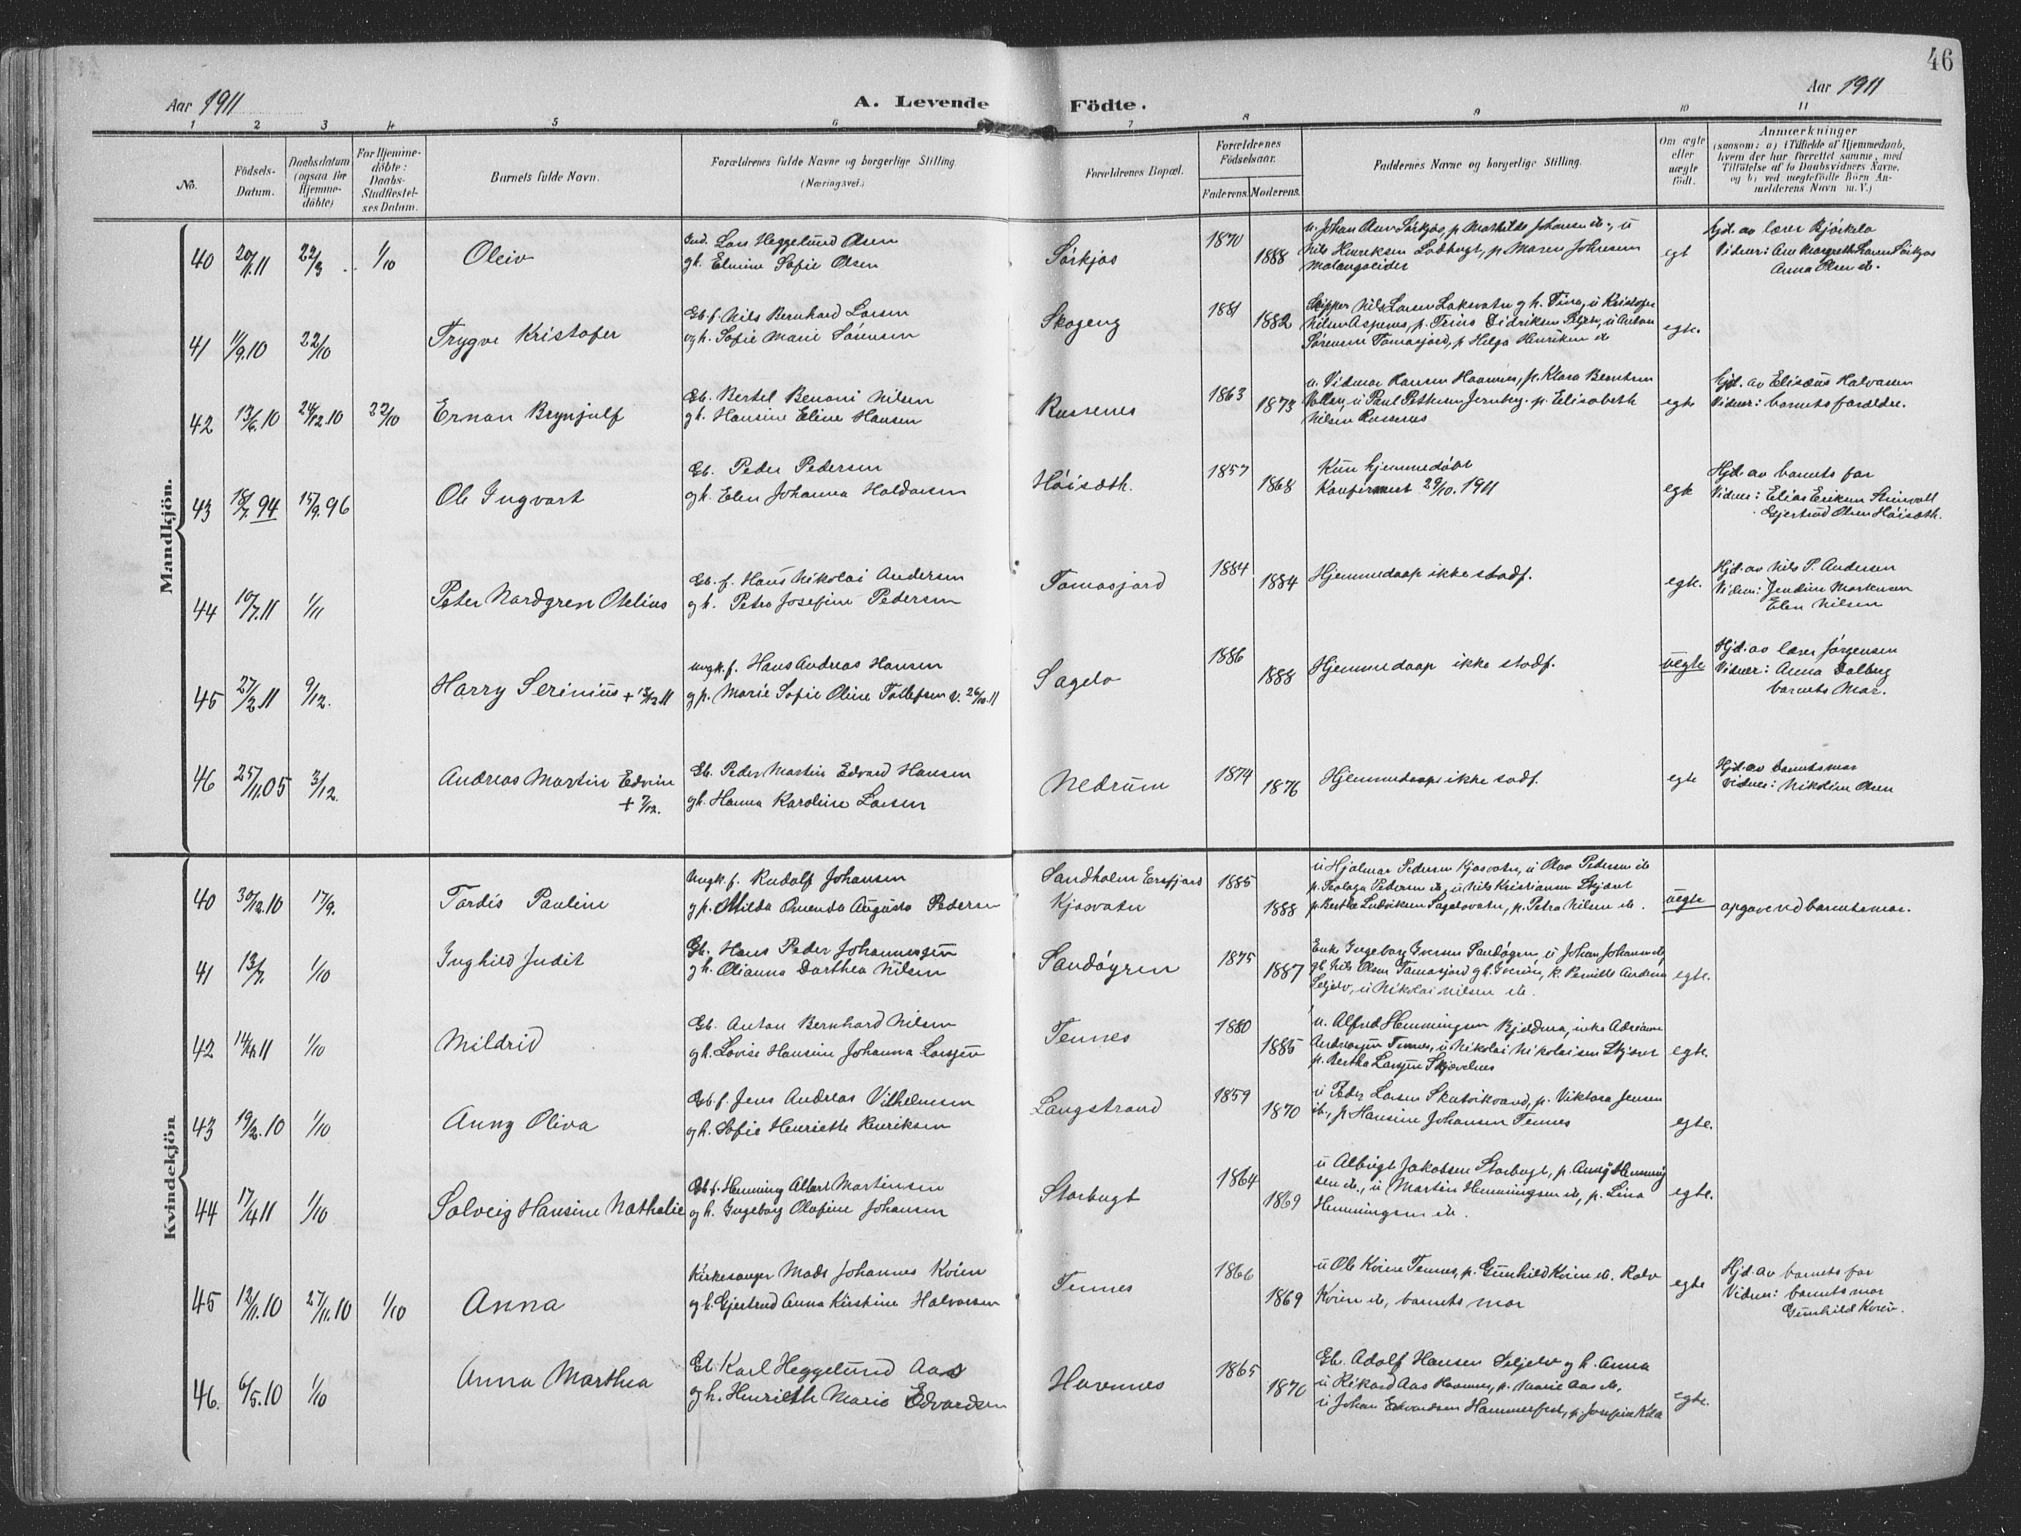 46
Aar 1911
A. Levende Födte.
Aar 1911
1 2 3 4 5 6 7 8 9 10 11
No.
Födsels-
Datum.
Daabsdatum
(ogsaa for
Hjemme-
döbte)
For Hjemme-
döbte:
Daabs-
Stadfæstel-
ses Datum.
Barnets fulde Navn.
Forældrenes fulde Navne og borgerlige Stilling.
(Næringsvei.)
Forældrenes Bopæl.
Forældrenes
Födselsaar.
Faderens. Moderens.
Faddernes Navne og borgerlige Stilling.
Om ægte
eller
uægte
födt.
Anmærkninger
(saasom: a) i Tilfælde af Hjemmedaab,
hvem der har forrettet samme, med
Tilföielse af to Daabsvidners Navne,
og b) ved uægtefödte Börn An-
melderens Navn m. V.)
Mandkjön.
40 20/1.11 22/3 1/10 Oleiv
Ind. Lars Heggelund Olsen
gh. Elmine Sofie Olsen
Sørkjos 1870 1888
u. Johan Olsen Sørkjos, p. Mathilde Johansen ib., u
Nils Henriksen p. Maren Johnsen
Malangseidet
egt
Hjd. av lærer Bjørklo
Vidner: Margreth Larsen Sørkjos
Anna Olsen ib.
41 11/9.10 22/10 Trygve Kristofer
Gb. f. Nils Bernhard Larsen
og h. Sofie Marie Sørensen
Skogeng 1881 1882
Skipper Nils Larsen Laksvatn g h. Tina, u Kristofer
Nilsen Aspenes, p. Trine Didriksen Seljelv, u Anton
Sørensen Tomasjord, p Helga Henriksen ib
egte.
42 13/6.10 24/12.10 22/10 Ernan Brynjulf
Gb. Bertel Benoni Nilsen
gh. Hansine Eline Hansen
Russenes 1863 1873
u. Vidmar Hansen Havnnes, p. Klara Berntsen
Volley, u Paul Pettersen Jernberg, p. Elisabeth
Nilsen Russenes
egte
Hjd. av Elisæus Halvorsen
Vidner: barnets forældre.
43 18/7.94 15/9.96 Ole Ingvart
Gb. Peder Pedersen
gh. Elen Johanna Haldorsen
Høisæth. 1857 1868
Kun hjemmedøbt
Konfirmert 29/10.1911
egte
Hjd. av barnets far
Vidner: Elias Eriksen Steinvoll
Gjertrud Olsen Høisæth.
44 10/7.11 1/11 Peter Nordgren Otelius
Gb. f. Hans Nikolai Andersen
gh. Petra Josefine Pedersen
Tomasjord 1884 1884
Hjemmedaap ikke stadf.
egte.
Hjd. av Nils P. Andersen
Vidner: Jendine Mortensen
Elen Nilsen
45 27/2.11 9/12. Harry Serinius + 13/12.11
Ungk. f. Hans Andreas Hansen
g p. Marie Sofie Oline Tollefsen V. 26/10.11
Sagelv 1886 1888
Hjemmedaap ikke stadf.
uegte
Hjd. av lærer Jørgensen
Vidner: Anna Dalberg
barnets Mor.
46 25/11.05 3/12. Andreas Martin Edvin
+ 7/12.
Gb. Peder Martin Edvard Hansen
gh. Hanna Karoline Larsen
Nedrum 1874 1876
Hjemmedaap ikke stadf.
egte
Hjd. av barnets mor
Vidner: Nikoline Olsen
Kvindekjön
40 30/12.10 17/9. Tordis Pauline
Ungk. f. Rudolf Johansen
g p. Milda Omenda Augusta Pedersen
Sandholm Ersfjord
Kjosvatn 1885 1888
u Hjalmar Pedersen Kjosvatn, u Olav Pedersen ib
p. Pedersen ib, u Nils Kristiansen Skjæret
p. Berthe Ludviksen Sagelvvatn, p. Petra Nilsen ib.
uegte
opgave ved barnets mor.
41 13/7. 1/10 Inghild Judit
Gb. Hans Peder Johannessen
gh. Olianna Dorthea Nilsen
Sandøyren 1875 1887
Enke Ingeborg Iversen Sandøyren, u Johan Johannes ib,
gb. Nils Olsen Tomasjord g h. k. Pernille Anders
Seljelv, u Nikolai Nilsen ib.
egte.
42 11 1/10 Mildrid
Gb. Anton Bernhard Nilsen
gh. Lovise Hansine Johanna Larsen
Tennes 1880 1885
u. Alfred Hemmingsen enke Adriane
Andreassen Tennes, u Nikolai Nikolaisen Skjæret
p. Bertha Larsen Skjævelnes
egte.
43 19/2.10 1/10 Anny Oliva
Gb. f. Jens Andreas Vilhelmsen
gh. Sofie Henriette Henriksen
Langstrand 1859 1870
u Peder Larsen Skutvikvand, p. Viktora Jensen
ib., p Hansine Johansen Tennes
egte.
44 17/4.11 1/10 Solveig Hansine Nathalie
Gb. f. Hemming Albert Martinsen
gh. Ingeborg Olufine Johansen
Storbugt 1864 1869
u Albrigt Jakobsen Storbugt, p. Anny Hemming
sen ib., u Martin Hemmingsen ib, p. Lina
Hemmingsen ib.
egte.
45 12/11.10 27/11.10 1/10 Anna
Kirkesanger Mads Johannes Kvien
gh. Gjertrud Anna Kirstine Halvorsen
Tennes 1866 1869
u Ole Kvien Tennes, p. Gunhild Kvien ib. Rolv
Kvien ib, barnets mor
egte
Hjd. av barnets far
Vidner: barnets mor
Gunhild Kvien.
46. 6/5.10 1/10 Anna Marthea
Gb Karl Heggelund Aas
gh. Henriette Marie Edvardsen
Havnnes 1865 1870
Gb. Adolf Hansen Seljelv g h. Anna
u Rikard Aas Havnnes, p. Marie Aas ib,
u Johan Edvardsen Hammerfest, p. Josefine
egte.